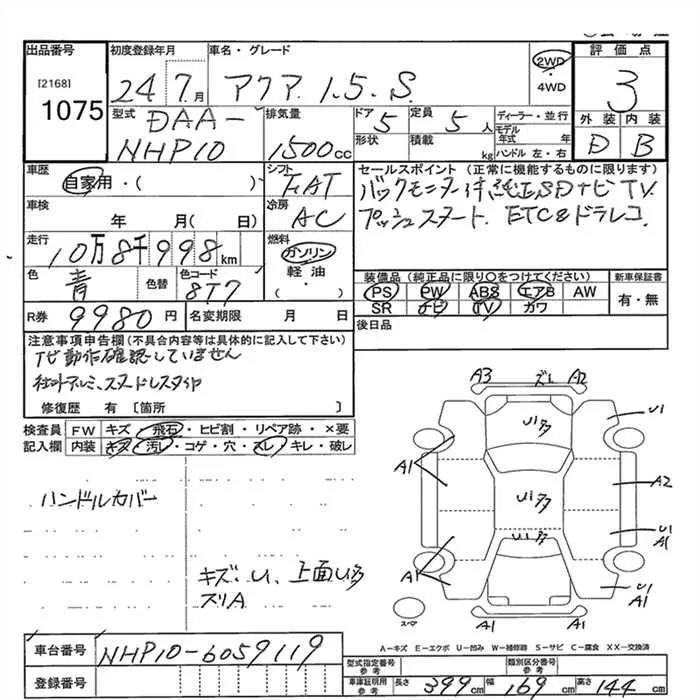 出品番号 初度登録年月 車名・グレード 2WD・4WD 評価点
[2168]
1075 24 7月 アクア 1.5 S 3
型式 DAA-NHP10 排気量 1500cc ドア 5 定員 5人 ディーラー・並行 外装 内装
形状 積載 kg モデル年式 年 D B
ハンドル 左・右
車歴 自家用・( ) シフト FAT セールスポイント (正常に機能するものに限ります)
バックモニター付純正SDナビTV
車検 年 月(日) 冷房 AC プッシュスタート. ETC&ドラレコ
走行 10万8千998km 燃料 ガソリン
軽油・
( )
色 青 色替 色コード 8T7 装備品 (純正品に限り○をつけてください) 新車保証書
PS PW ABS エアB AW 有・無
SR ナビ TV カワ
R券 9980円 名変期限 月 日 後日品
注意事項申告欄(不具合内容等は具体的に記入して下さい)
TV動作確認していません
社外アルミ、スタッドレスタイヤ
修復歴 有 [箇所 ]
検査員 FW キズ・飛石・ヒビ割・リペア跡・×要
記入欄 内装 キズ・汚レ・コゲ・穴・スレ・キレ・破レ
ハンドルカバー
キズ、U、上面U多
スリA
A3 ズレ A2
U1多 U1
A1
U1多 A2
U1多 U1
A1
A1 U1
A1
スペア A1 A1
A-キズ E-エクボ U-凹み W-補修跡 S-サビ C-腐食 XX-交換済
車台番号 NHP10-6059119
登録番号
型式指定番号 参考 類別区分番号 参考
車庫証明用 参考 長さ 399cm 幅 169cm 高さ 144cm